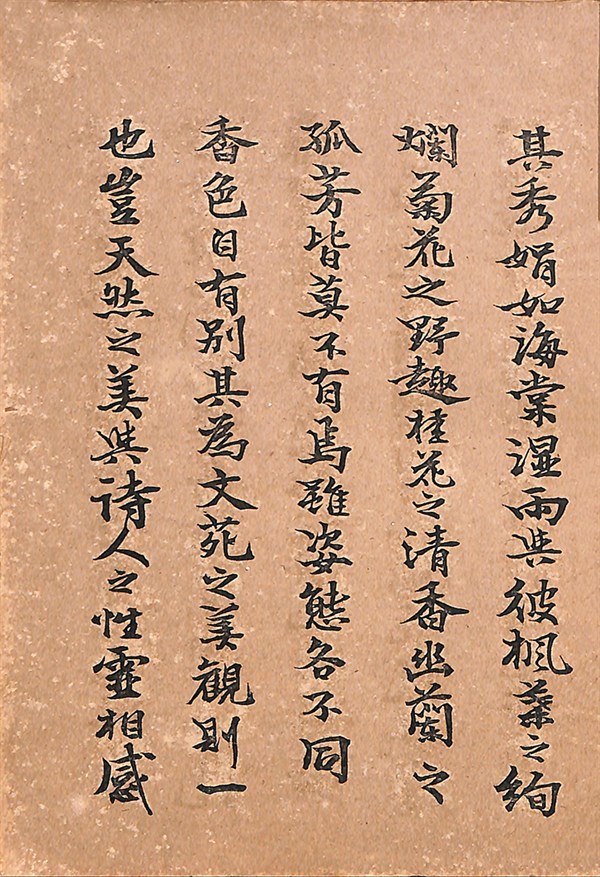 其秀娟如海棠湿雨與彼楓葉之絢
斓菊花之野趣桂花之清香幽蘭之
孤芳皆莫不有焉雖姿態各不同
香色自有别其為文苑之美觀則一
也豈天然之美與詩人之性靈相感